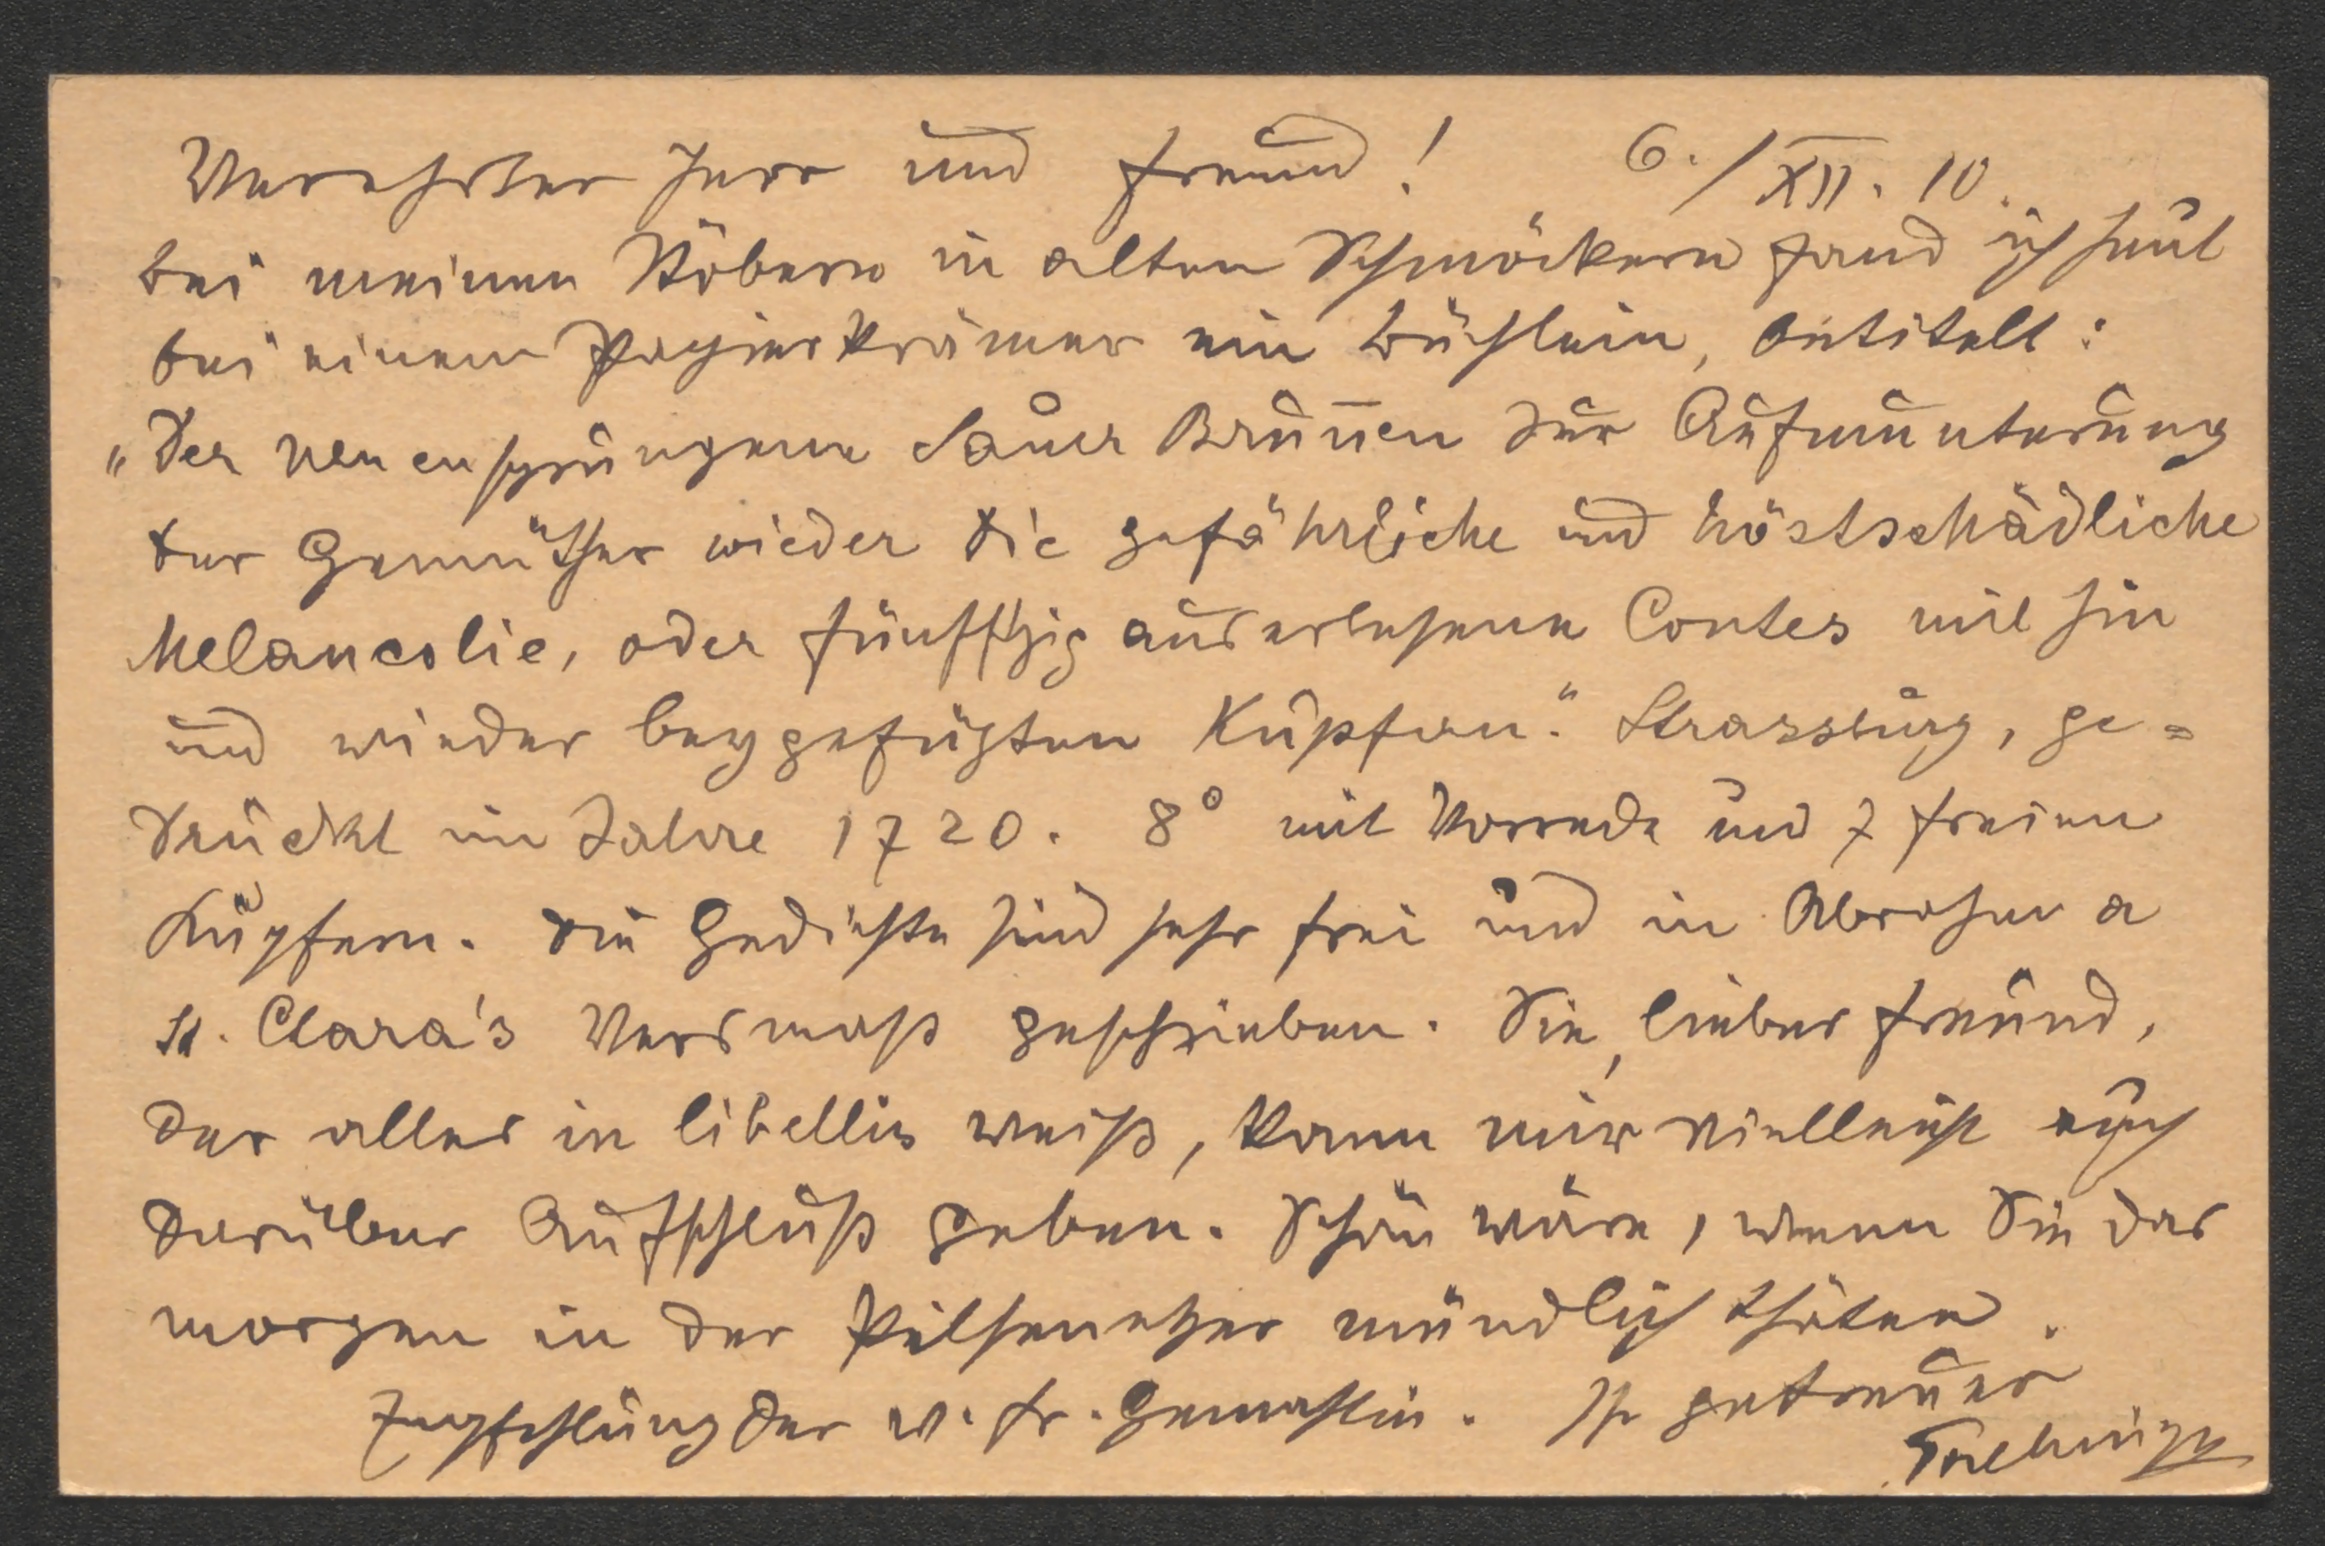 Verehrter Herr und Freund! 6./XII. 10.
bei meinem Stöbern in alten Schmöckern fand ich heut
bei einem Papierkrämer ein Büchlein, betitelt:
„Der neu ensprungene Sauer Brunen zur Aufmunterung
der Gemüther wieder die gefährliche und höstschädliche
Melancolie, oder fünfftzig auserlesene Contes mit hin
und wieder beygefügten Kupfern." Strassburg, ge=
druckt im Jahre 1720. 8° mit Vorrede und 7 freien
Kupfern. Die Gedichte sind sehr frei und in Abraham a
St. Clara's Versmaß geschrieben. Sie, lieber Freund,
der alles in libellis weiß, kann mir vielleicht auch
darüber Aufschluß geben. Schön wäre, wenn Sie das
morgen in der Pilsenetzer mündlich thäten.
Empfehlung der v. Fr. Gemahlin. Ihr getreuer